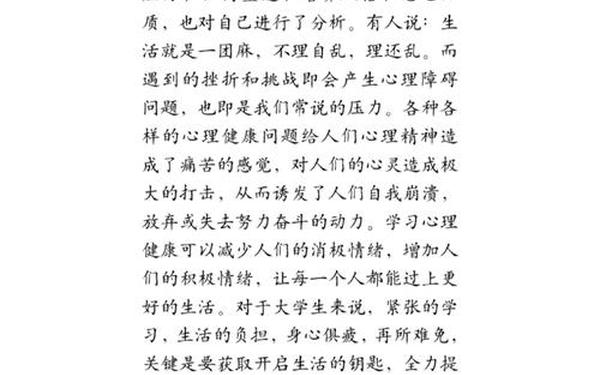 质，也对自己进行了分析。有人说：生
活就是一团麻，不理自乱，理还乱。而
遇到的挫折和挑战即会产生心理障碍
问题，也即是我们常说的压力。各种各
样的心理健康问题给人们心理精神造
成了痛苦的感觉，对人们的心灵造成极
大的打击，从而诱发了人们自我崩溃，
放弃或失去努力奋斗的动力。学习心理
健康可以减少人们的消极情绪，增加人
们的积极情绪，让每一个人都能过上更
好的生活。对于大学生来说，紧张的学
习，生活的负担，身心俱疲，再所难免，
关键是要获取开启生活的钥匙，全力提